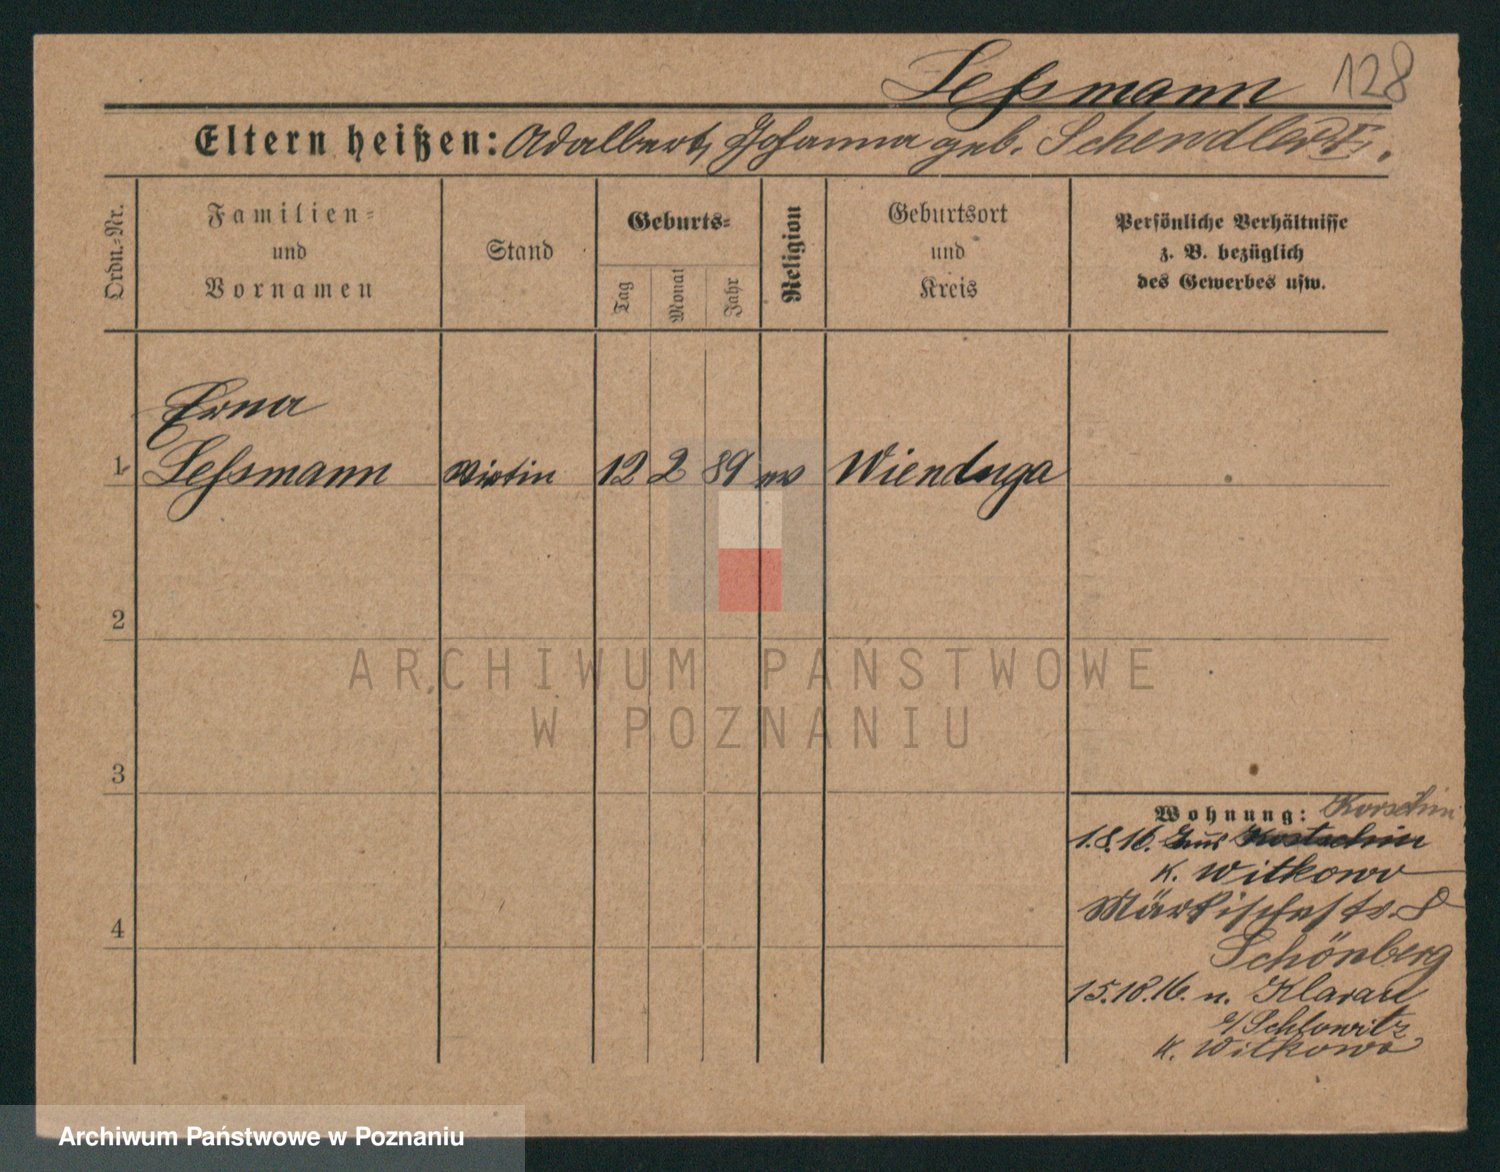 Leßmann 128
Eltern heißen: Adalbert, Johanna geb.
Ordn.-Nr.
Familien-
und
Vornamen
Stand
Geburts-
Tag
Monat
Jahr
Religion
Geburtsort
und
Kreis
Persönliche Verhältnisse
z. B. bezüglich
des Gewerbes usw.
Erna
1 Leßmann Wirtin 12 2 89 ev Wienduga
2
3
4
Wohnung: Korschin
1.8.16. aus Kostschin
K. Witkowo
Märkischestr. 8
Schönberg
15.18.16. n. Klarau
K. Witkowo
ARCHIWUM PAŃSTWOWE
W POZNANIU
Archiwum Państwowe w Poznaniu